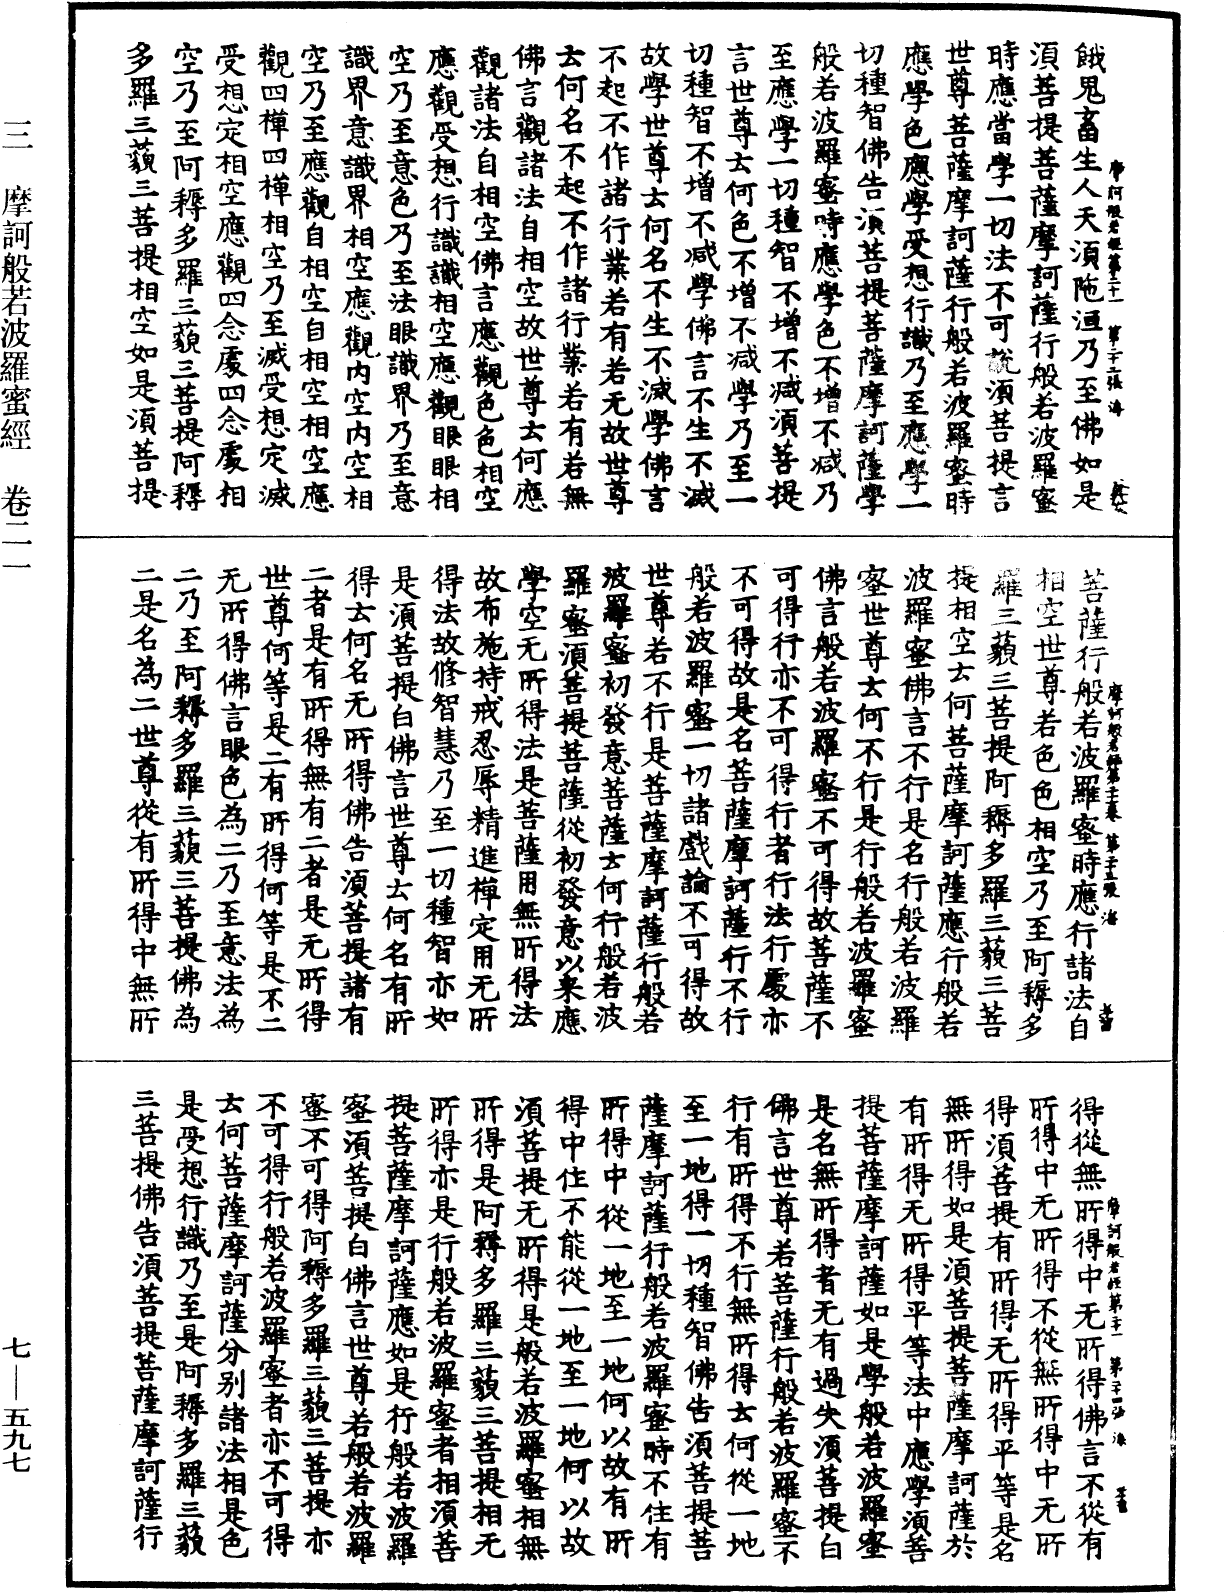 餓鬼畜生人天須陁洹乃至佛如是
須菩提菩薩摩訶薩行般若波羅蜜
時應當學一切法不可說須菩提言
世尊菩薩摩訶薩行般若波羅蜜時
應學色應學受想行識乃至應學一
切種智佛告須菩提菩薩摩訶薩學
般若波羅蜜時應學色不增不減乃
至應學一切種智不增不減須菩提
言世尊云何色不增不減學乃至一
切種智不增不減學佛言不生不滅
故學世尊云何名不生不滅學佛言
不起不作諸行業若有若无故世尊
云何名不起不作諸行業若有若無
佛言觀諸法自相空故世尊云何應
觀諸法自相空佛言應觀色色相空
應觀受想行識識相空應觀眼眼相
空乃至意色乃至法眼識界乃至意
識界意識界相空應觀內空內空相
空乃至應觀自相空自相空相空應
觀四禪四禪相空乃至滅受想定滅
受想定相空應觀四念處四念處相
空乃至阿耨多羅三藐三菩提阿耨
多羅三藐三菩提相空如是須菩提
摩訶般若經第二十一 第二十二張 海
菩薩行般若波羅蜜時應行諸法自
相空世尊若色色相空乃至阿耨多
羅三藐三菩提阿耨多羅三藐三菩
提相空云何菩薩摩訶薩應行般若
波羅蜜佛言不行是名行般若波羅
蜜世尊云何不行是行般若波羅蜜
佛言般若波羅蜜不可得故菩薩不
可得行亦不可得行者行法行處亦
不可得故是名菩薩摩訶薩行不行
般若波羅蜜一切諸戲論不可得故
世尊若不行是菩薩摩訶薩行般若
波羅蜜初發意菩薩云何行般若波
羅蜜須菩提菩薩從初發意以來應
學空无所得法是菩薩用無所得法
故布施持戒忍辱精進禪定用无所
得法故修智慧乃至一切種智亦如
是須菩提白佛言世尊云何名有所
得云何名无所得佛告須菩提諸有
二者是有所得無有二者是无所得
世尊何等是二有所得何等是不二
无所得佛言眼色為二乃至意法為
二乃至阿耨多羅三藐三菩提佛為
二是名為二世尊從有所得中無所
得從無所得中无所得佛言不從有
所得中无所得不從無所得中无所
得須菩提有所得无所得平等是名
無所得如是須菩提菩薩摩訶薩於
有所得无所得平等法中應學須菩
提菩薩摩訶薩如是學般若波羅蜜
是名無所得者无有過失須菩提白
佛言世尊若菩薩行般若波羅蜜不
行有所得不行無所得云何從一地
至一地得一切種智佛告須菩提菩
薩摩訶薩行般若波羅蜜時不住有
所得中從一地至一地何以故有所
得中住不能從一地至一地何以故
須菩提无所得是般若波羅蜜相無
所得是阿耨多羅三藐三菩提相无
所得亦是行般若波羅蜜者相須菩
提菩薩摩訶薩應如是行般若波羅
蜜須菩提白佛言世尊若般若波羅
蜜不可得阿耨多羅三藐三菩提亦
不可得行般若波羅蜜者亦不可得
云何菩薩摩訶薩分別諸法相是色
是受想行識乃至是阿耨多羅三藐
三菩提佛告須菩提菩薩摩訶薩行
摩訶般若經第二十一 第二十四張 海
三 摩訶般若波羅蜜經 卷二一
七—五九七